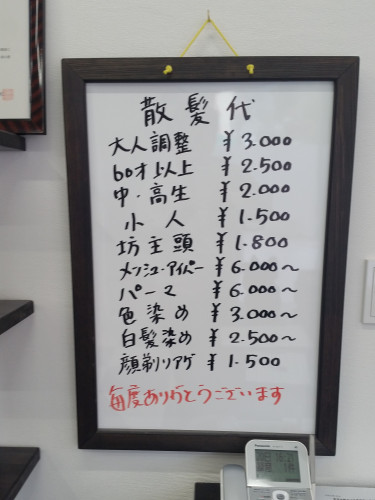 散髪代
大人調整 ¥3.000
60才以上 ¥2.500
中・高生 ¥2.000
小人 ¥1.500
坊主頭 ¥1.800
メンシュ・アイパー ¥6.000～
パーマ ¥6.000～
色染め ¥3.000～
白髪染め ¥2.500～
顔剃リアゲ ¥1.500
毎度ありがとうございます
Panasonic